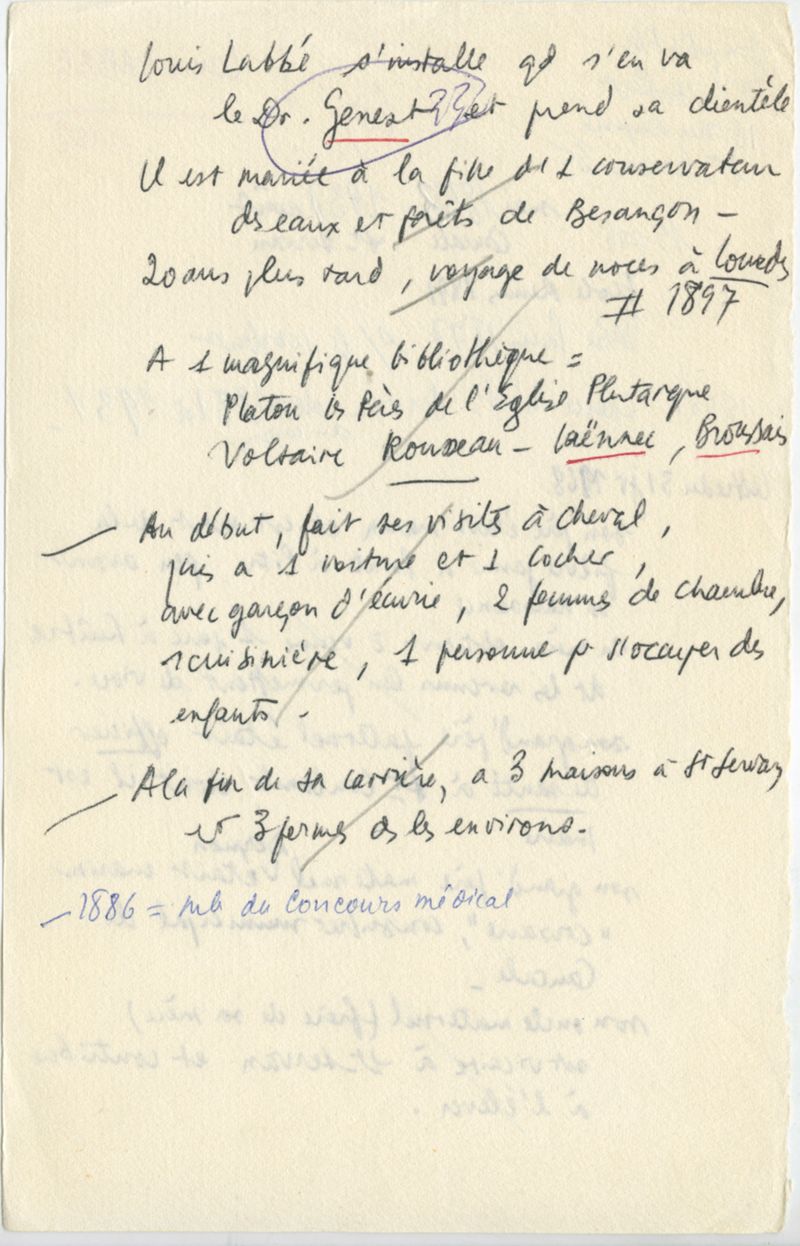 Louis Labbé s'installe qd s'en va
le Dr. Genest ?? et prend sa clientèle
Il est mariée à la fille d'1 conservateur
des eaux et forêts de Besançon –
20 ans plus tard, voyage de noces à Lourdes
# 1897
A 1 magnifique bibliothèque =
Platon les Pères de l'Église Plutarque
Voltaire Rousseau – Laënnec, Broussais
Au début, fait ses visites à cheval,
puis a 1 voiture et 1 cocher,
avec garçon d'écurie, 2 femmes de chambre,
1 cuisinière, 1 personne pr s'occuper des
enfants.
A la fin de sa carrière, a 3 maisons à St Servan
et 3 fermes ds les environs.
1886 = mb du Concours médical